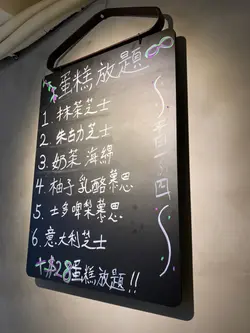 蛋糕放題
1. 抹茶芝士
2. 朱古力芝士
3. 奶茶 海綿
4. 柚子 乳酪慕思
5. 士多啤梨慕思
6. 意大利芝士
+$28蛋糕放題!!